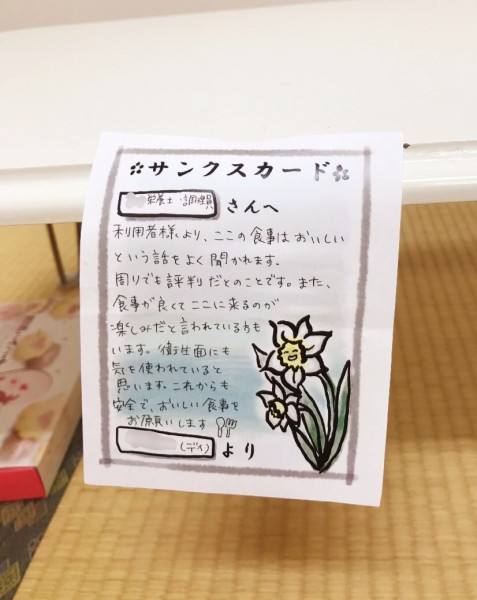 サンクスカード
栄養士・調理員 さんへ
利用者様より、ここの食事はおいしい
という話をよく聞かれます。
周りでも評判だとのことです。また、
食事が良くてここに来るのが
楽しみだと言われている方も
います。衛生面にも
気を使われていると
思います。これからも
安全で、おいしい食事を
お願いします
(デイ) より